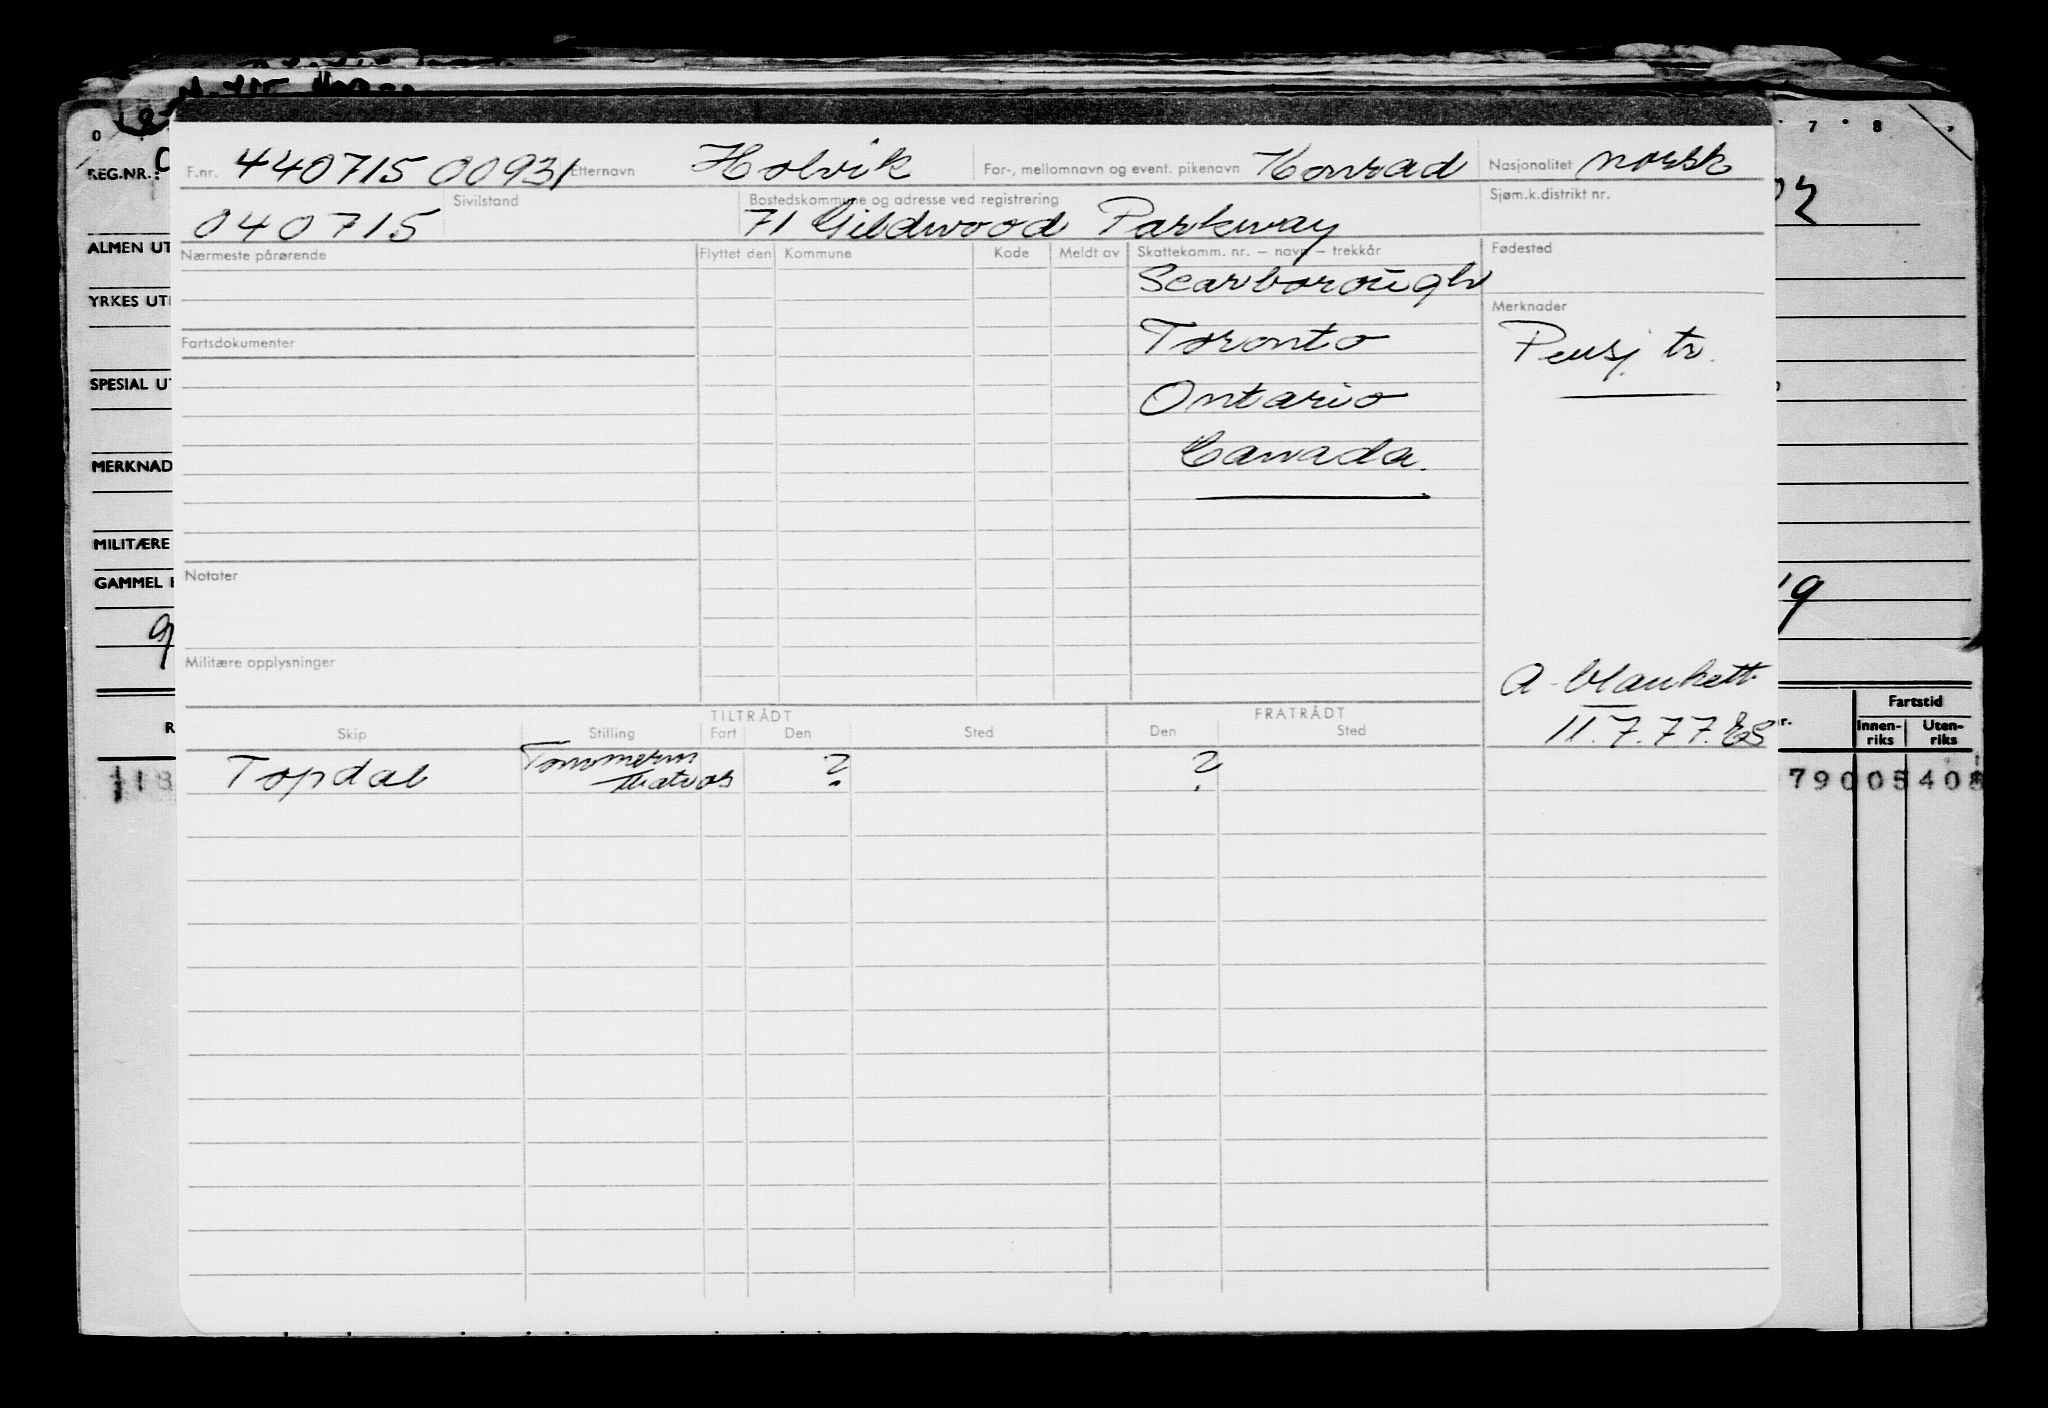 0 7 8
REG.NR.:
ALMEN UT
YRKES UT
SPESIAL UT
MERKNAD
MILITÆRE
GAMMEL
F.nr. 440715 00931 Etternavn Holvik For-, mellomnavn og event. pikenavn Konrad Nasjonalitet norsk
040715 Sivilstand Bostedskommune og adresse ved registrering 71 Gildwood Parkway Sjøm.k.distrikt nr.
Nærmeste pårørende Flyttet den Kommune Kode Meldt av Skattekomm. nr. – navn – trekkår Fødested
Scarborough
Merknader
Fartsdokumenter Toronto Pensj. tr.
Ontario
Canada.
Notater
Militære opplysninger
A-blankett
11.7.77. ES
TILTRÅDT FRATRÅDT
Skip Stilling Fart Den Sted Den Sted
Topdal Tømmerm ? ?
Matros
19
Fartstid
Innen-riks Uten-riks
79005408